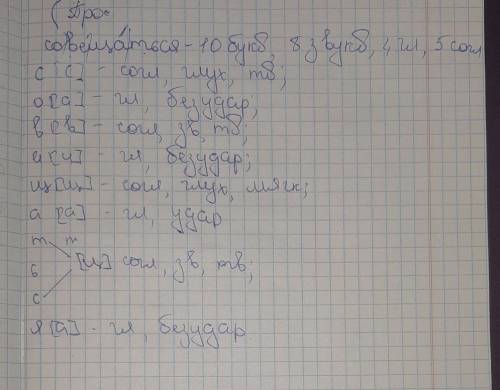 (Прос
совеща́ться - 10 букв, 8 звукв, 4 гл, 5 согл
с [с] - согл, глух, тв;
о [а] - гл, безудар;
в [в] - согл, зв, тв;
и [и] - гл, безудар;
щ [щ] - согл, глух, мягк;
а [а] - гл, удар
т т
ь [ц] согл, зв, тв;
с
я [а] - гл, безудар